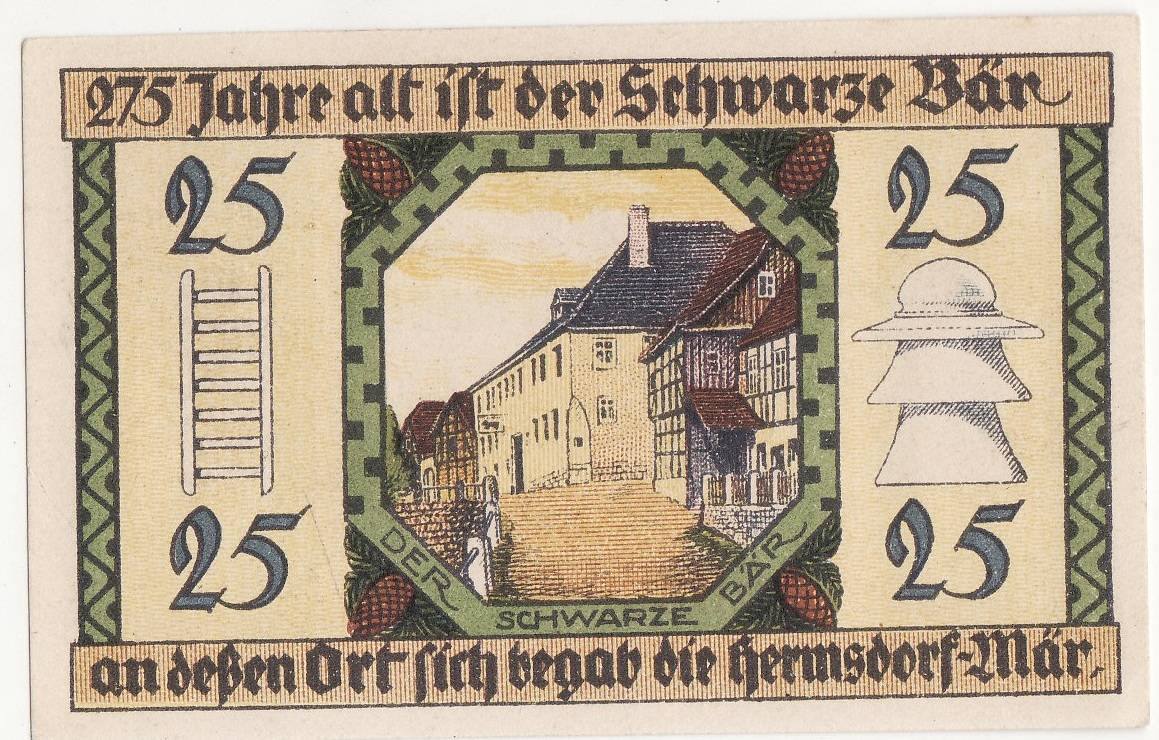 275 Jahre alt ist der Schwarze Bär
25
25
DER
SCHWARZE
BÄR
25
25
an deßen Ort sich begab die Hermsdorf-Mär.